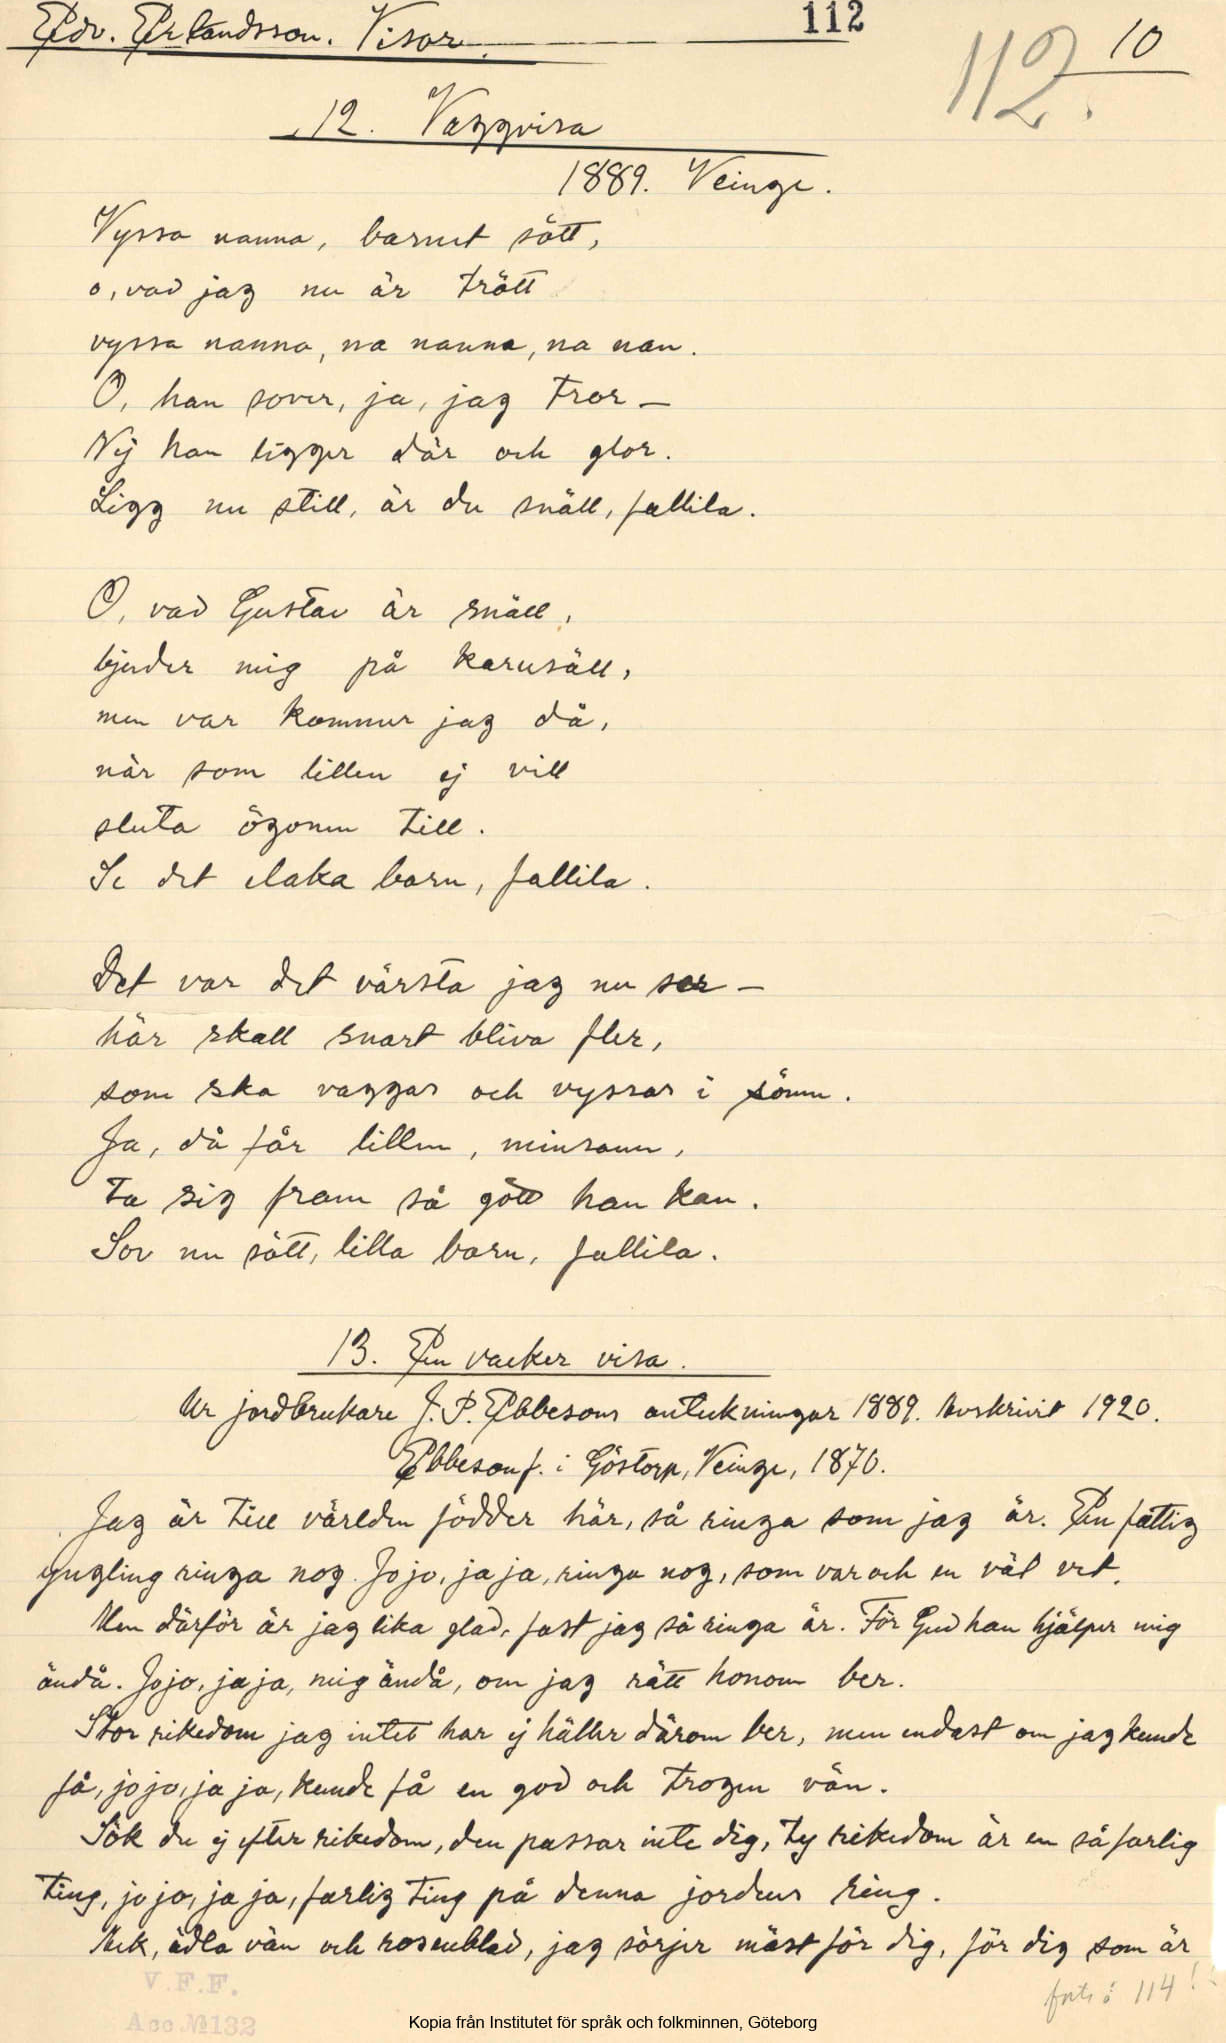 Edv. Erlandsson. Visor.
112
112.
10
12. Vaggvisa
1889. Veinge.
Vyssa nanna, barnet sött,
o, vad jag nu är trött
vyssa nanna, na nanna, na nan.
O, han sover, ja, jag tror –
Nej han ligger där och glor.
Ligg nu still, är du snäll, fallila.
O, vad Gustav är snäll,
bjuder mig på karusäll,
men var kommer jag då,
när som lillen ej vill
sluta ögonen till.
Se det elaka barn, fallila.
Det var det värsta jag nu ser –
här skall snart bliva fler,
som ska vaggas och vyssas i sömn.
Ja, då får lillen, minsann,
ta sig fram så gött han kan.
Sov nu sött, lilla barn, fallila.
13. En vacker visa.
Ur jordbrukare J. P. Ebbesons anteckningar 1889. Avskrivit 1920.
Ebbeson f. i Göstorp, Veinge, 1870.
Jag är till världen födder här, så ringa som jag är. En fattig
yngling ringa nog. Jojo, jaja, ringa nog, som var och en väl vet.
Men därför är jag lika glad, fast jag så ringa är. För Gud han hjälper mig
ändå. Jojo, jaja, mig ändå, om jag rätt honom ber.
Stor rikedom jag intet har ej häller därom ber, men endast om jag kunde
få, jojo, jaja, kunde få en god och trogen vän.
Sök du ej efter rikedom, den passar inte dig, ty rikedom är en så farlig
ting, jojo, jaja, farlig ting på denna jordens ring.
Ack, ädla vän och rosenblad, jag sörjer mäst för dig, för dig som är
forts å 114!
V.F.F.
Acc.№132
Kopia från Institutet för språk och folkminnen, Göteborg